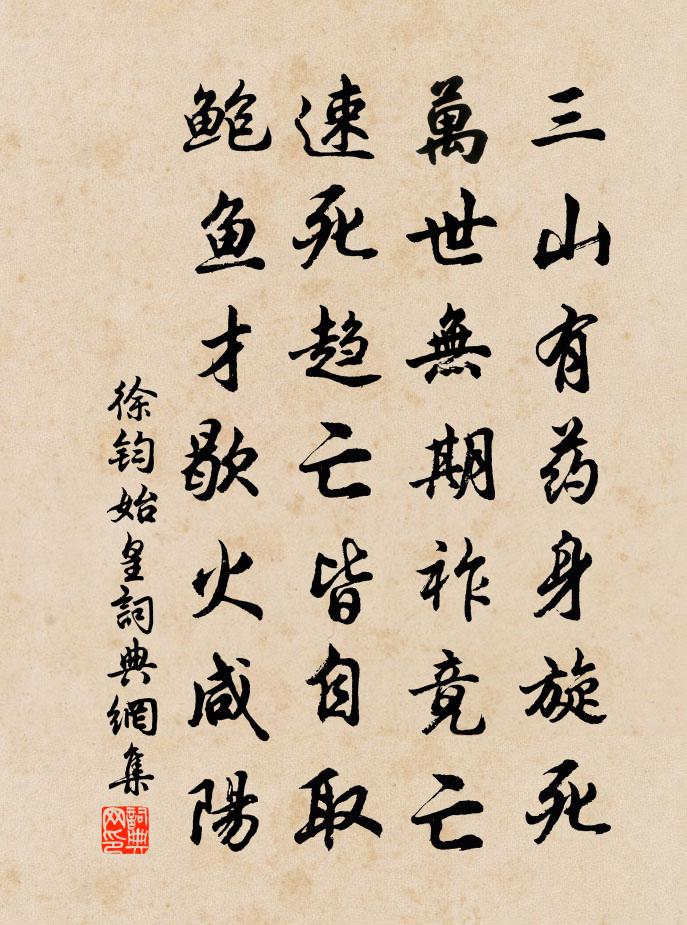 三山有药身旋死
萬世無期祚竟亡
速死趋亡皆自取
鲍鱼才歇火咸陽
徐钧始皇詞典網集
詞典网印